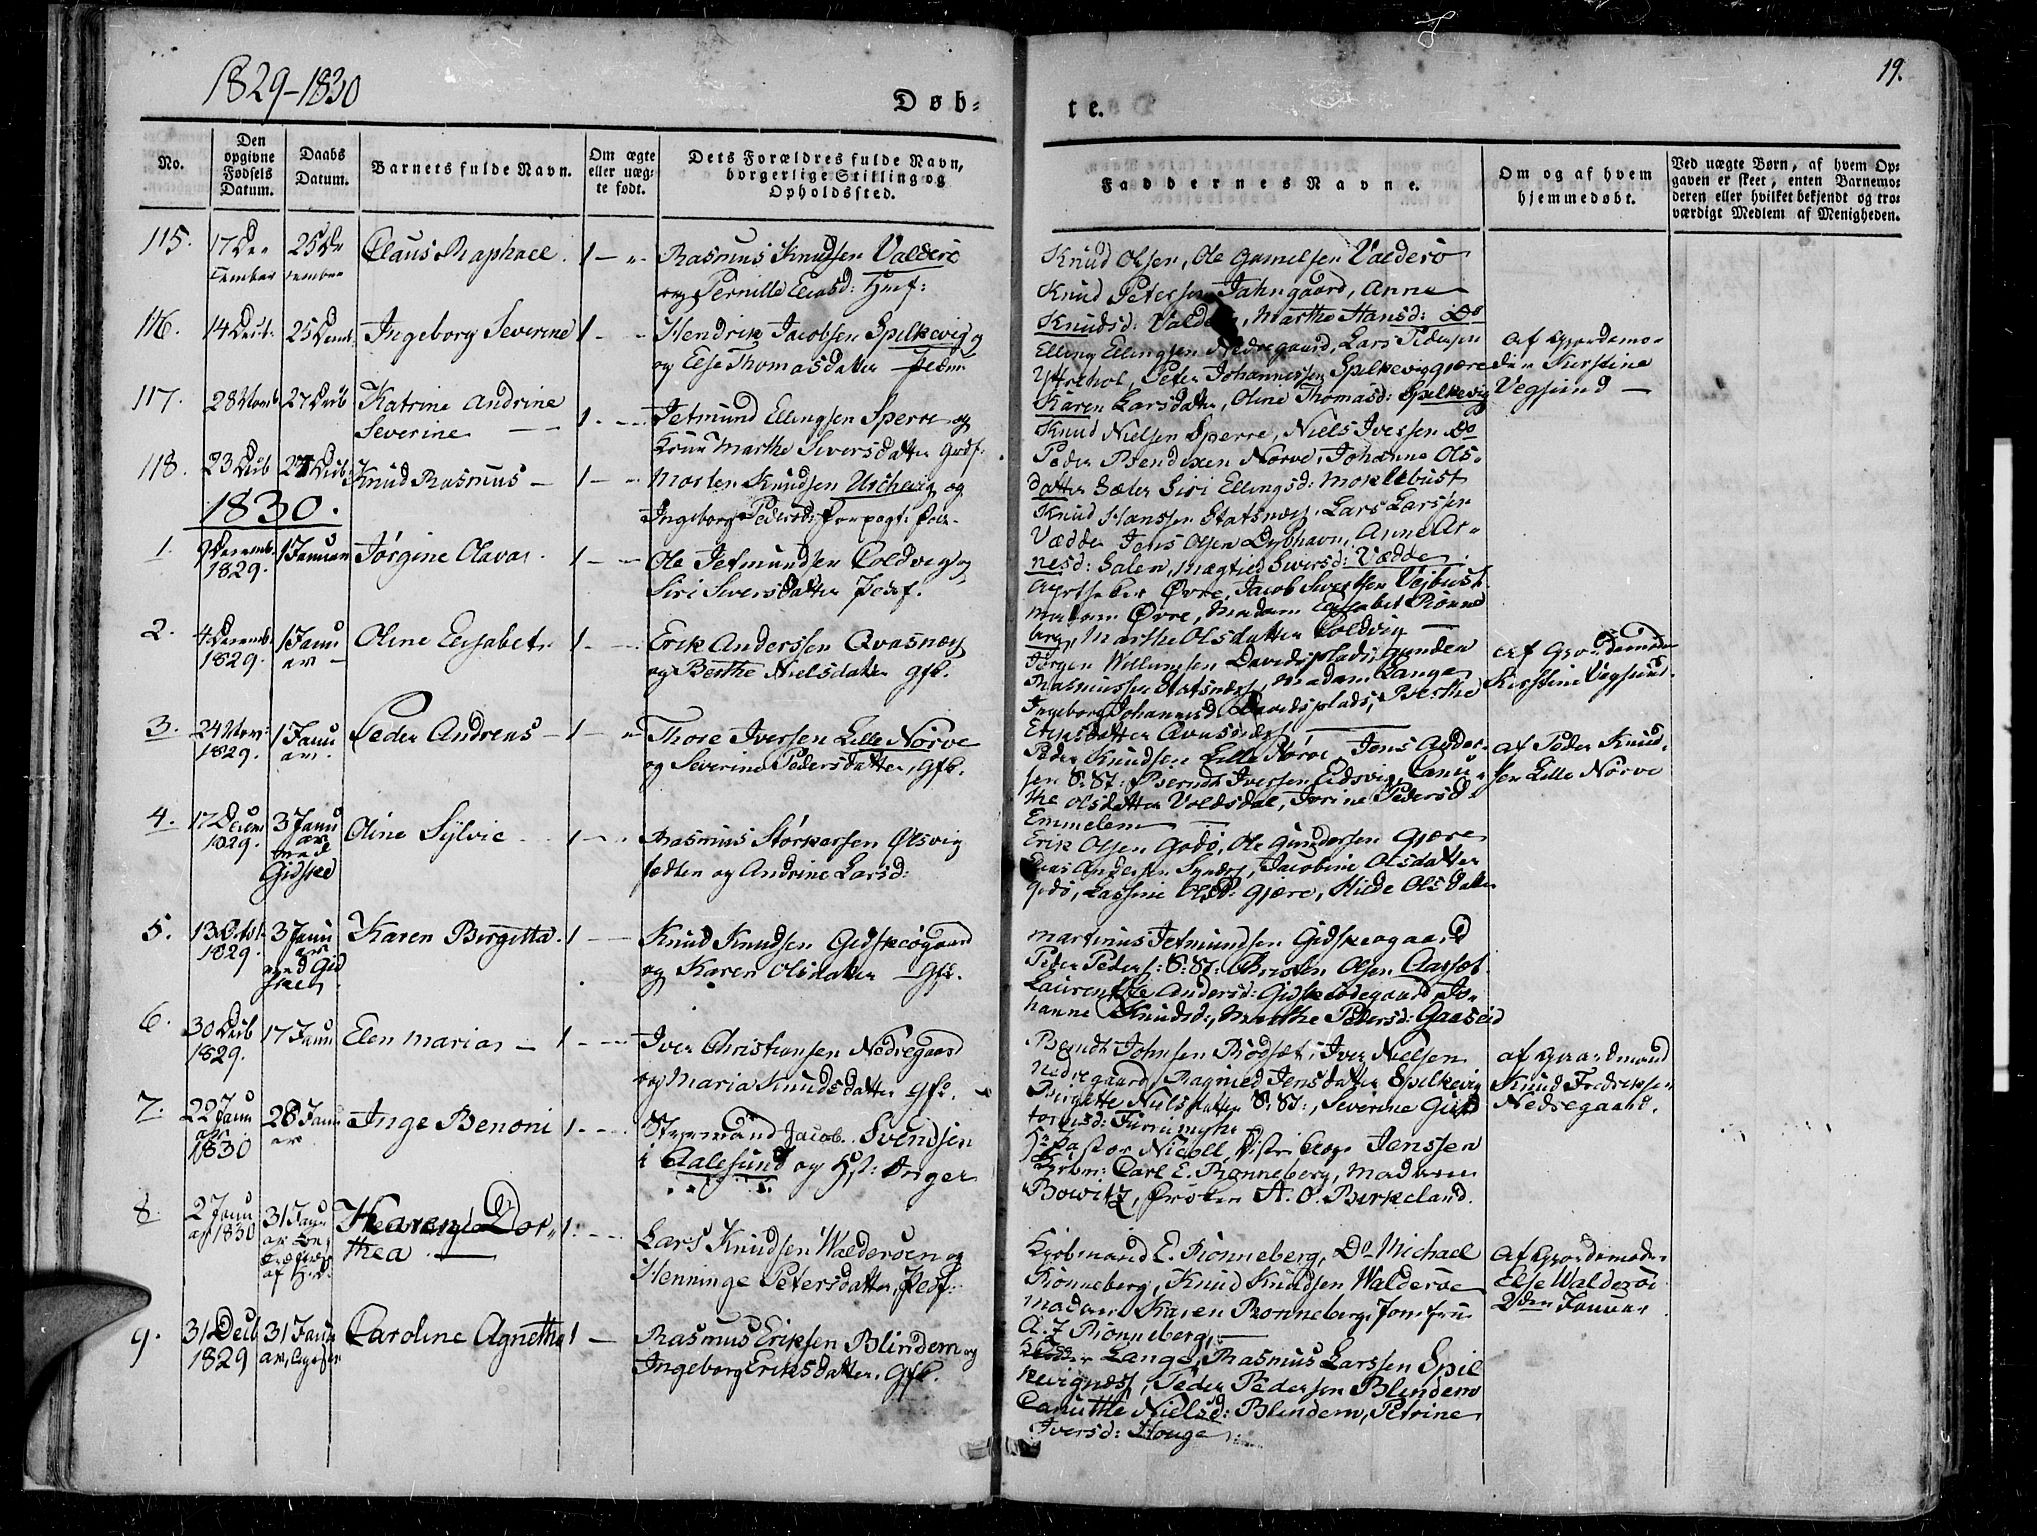 1829-1830
Døb-
te.
19.
No.
Den opgivne Fødsels Datum.
Daabs Datum.
Barnets fulde Navn.
Om ægte eller uæg-
te født.
Dets Forældres fulde Navn,
borgerlige Stilling og
Opholdssted.
Faddernes Navne.
Om og af hvem
hjemmedøbt.
Ved uægte Børn, af hvem Op-
gaven er skeet, enten Barnemo-
deren eller hvilket bekjendt og tro-
værdigt Medlem af Menigheden.
115. 17 De- 25 De- Claus Raphael. 1 — „ Rasmus Knudsen Valderö
cember cember og Pernille Eliasd:
Knud Olsen, Ole Gamelsen Valderö
Knud Petersen Jahngaard, Anne
Knudsd: Valderö, Marthe Hansd: Do
116. 14 Decb. 25 Decemb. Ingeborg Severine 1 - - Hendrik Jacobsen Spilkevig
og Else Thomasdatter
Elling Ellingsen Nedregaard, Lars Pedersen
Yttrehol, Peter Johannessen Spilkevig
Karen Larsdatter, Oline Thomasd: Spilkevig
af Gjordemo-
der Kirstine
Vegsund —
117. 28 Novb 27 Decb Katrine Andrine
Severine — 1 - - Jetmund Ellingsen Sperre og
Marthe Siversdatter
Knud Nielsen Sperre, Niels Iversen Do
Peder Bendixen Nörve, Johanne Ols-
datter Sæter Siri Ellingsd: Moklebust
118. 23 Decb 27 Decb: Knud Rasmus — 1 - - Morten Knudsen og
Ingeborg Pedersd:
Knud Hanssen Statsnæs, Lars Larssen
Vædde Jens Olsen Dybhavn, Anne Ar-
nesd: Salen, Magtild Siversd: Vædde
1830.
1. Decemb. 1829. 1 Januar Jörgine Olava. 1 - - Ole Jetmundsen Coldvig og
Siri Siversdatter
Övre, Jacob Sivertsen Vejbust
Madam Övre, Madam Elisabet Rönne
berg, Marthe Olsdatter Coldvig —
2. 4 Decemb. 1829. 1 Janu
ar — Oline Elisabet. 1 - - Erik Anderssen Qvasnæs
og Berthe Nielsdatter Gfb.
Jörgen Willumsen Davidsplads, Gunder
Rasmussen Statsnæs, Madam Lange
Ingeborg Johannesd. Davidsplads, Berthe
Eriksdatter Qvasnæs
af Gjordemoder
Kirstine Vegsund.
3. 24 Nov: 1829. 1 Janu
ar. Peder Andreas — 1 - „ Thore Iversen Lille Nörve
og Severine Pedersdatter, Gfb.
Peder Knudsen Lille Nörve, Jens Ander-
sen S: St: Bernt Iversen Eidsvig, Canu-
the Olsdatter Voldsdal, Jörine Pedersd.
Emmelem —
af Peder Knud-
sen Lille Nörve
4. 17 Decem 1829. 3 Janu
ar
med
Gidske Oline Sylvie 1 - - Rasmus Störkersen Ölsvig
födten og Andrine Larsd:
Erik Olsen Godö, Ole Gundersen Gjære
Andersen Synæs, Jacobine Olsdatter
Godö, Lassine Olsd: Gjære, Hilde Olsdatter
5. 13 Octob. 1829. 3 Janu
ar
med Gid
sken Karen Birgitta. 1 - - Knud Knudsen Gidskeögaard
og Karen Olsdatter — Gfb.
Martinus Jetmundsen Gidskeögaard
Peder Peders: S: St: Christen Olsen Aarsæt
Lauren Andersd: Gidskeödegaard, Jo-
hanne Knudsd:, Marthe Pedersd: Gaaseid
6. 30 Decb 1829. 17 Janu Elen Maria — 1 - - Iver Christiansen Nedregaard
og Maria Knudsdatter Gfb.
Berndt Johnsen Rödsæt, Iver Nielsen
Nedregaard, Ragnild Jensdatter Spilkevig
Birgitte Nielsdatter S: St:, Severine Gut
tormsd: Furmyhr —
af Gaardmand
Knud Fredriksen
Nedregaard.
7. 22 Janu
ar
1830 28 Janu
ar Inge Benoni 1 - - Styrmand Jacob Svendsen
i Aalesund og Hst: Inger
Pastor Nicoll, Aage Jenssen
Carl E. Rönneberg, Madame
Bowitz, A. O. Birkeland.
8. 2 Janu
ar 1830 31 Janu
ar Karen Dor-
thea 1 - - Lars Knudsen Walderöen og
Henninge Petersdatter,
Kjöbmand E. Rönneberg, Do Michael
Rönneberg, Knud Knudsen Walderöe
Madame Karen Rönneberg, Jomfru
A. J Rönneberg, —
af Gjordemoder
Else Walderöe
2den Januar
9. 31 Decb 1829 31 Janu
ar, Caroline Agnetha 1 — Rasmus Eriksen Blindem og
Ingeborg Eriksdatter, Gfb.
Lange, Rasmus Larssen Spil
kevignæs, Peder Pedersen Blindem
Canutthe Nielsd: Blindem, Petrine
Iversd: Houge